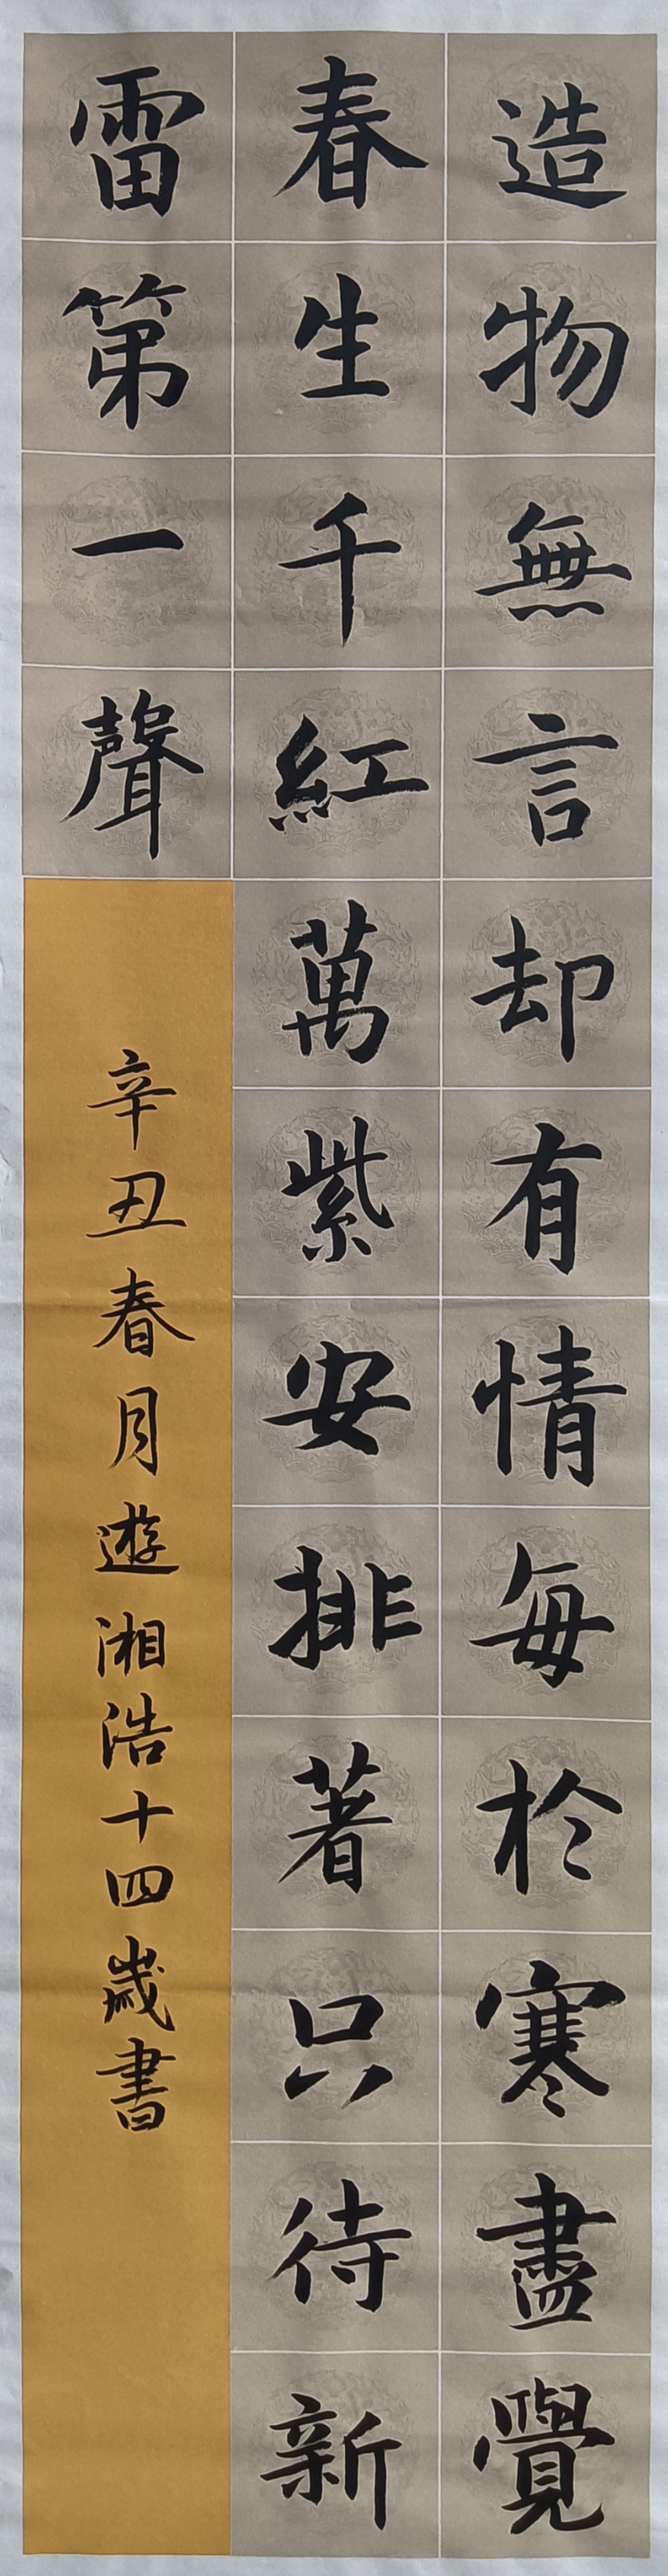 造物無言却有情每於寒盡覺
春生千紅萬紫安排著只待新
雷第一聲
辛丑春月遊湘浩十四歲書